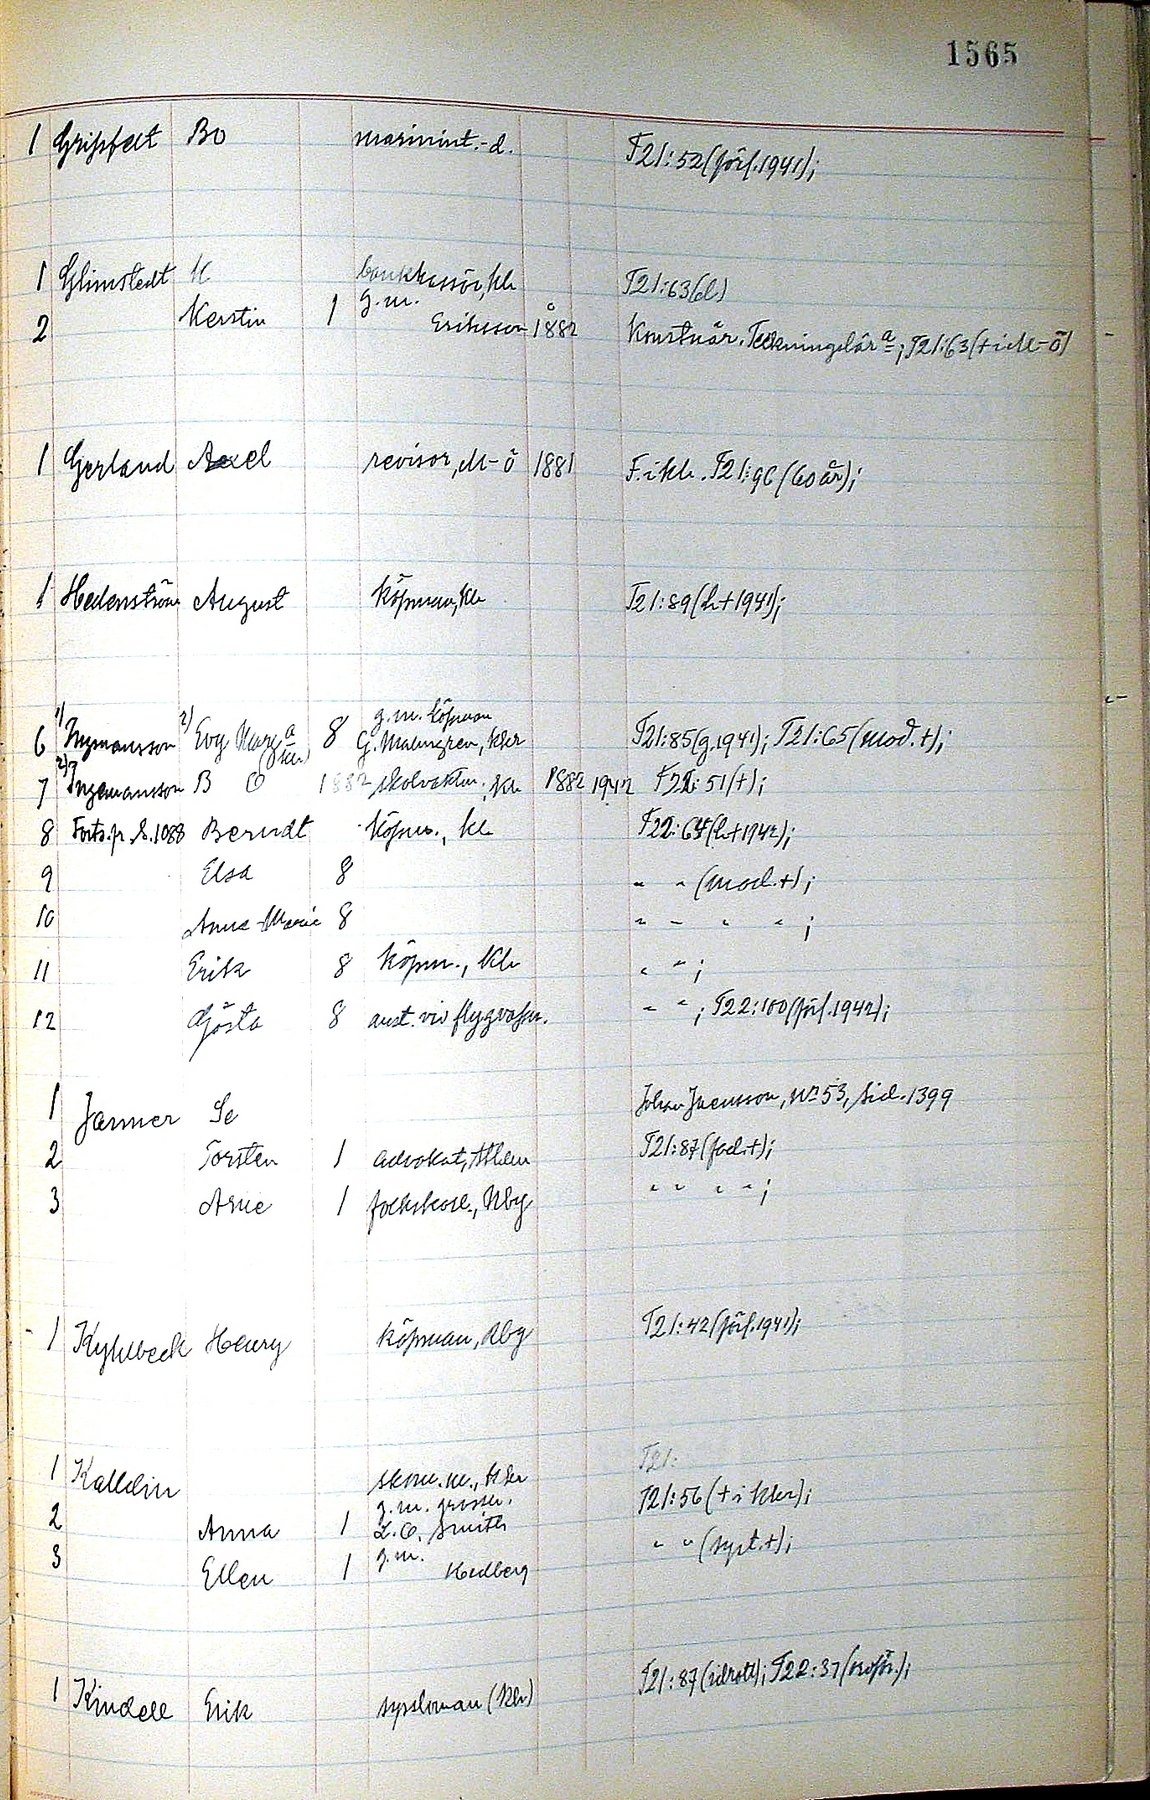 1565
1 Gripfelt Bo marinint.-d. T21:52(förl.1941);
1 Glimstedt K bankkassör, Khr T21:63(d)
2 Kerstin 1 g.m. Eriksson 1882 Konstnär. Teckningslär a; T21:63(+ i M-ö)
1 Gerland Axel revisor, M-ö 1881 F. i khr. T21:96 (60 år);
1 Hedenström August köpman, Khr T21:89(h+1941);
6 1) Ingmansson 2) Evy Marg a 8 g.m. köpman G. Malmgren, Khr T21:85(g.1941); T21:65(mod.+);
7 2) Ingemansson B O 1882 skolvaktm., Kh 1882 1942 T22:51(+);
8 Forts. fr. S. 1088 Berndt köpm., Kh T22:64(h+1942);
9 Elsa 8 " " (mod.+);
10 Anna-Marie 8 " " " " ;
11 Erik 8 köpm., Khr " " ;
12 Gösta 8 anst. vid flygvapn. " " ; T22:100(förl.1942);
1 Janner Se Johan Jaensson, No 53, Sid. 1399
2 Torsten 1 advokat, Sthlm T21:87(fad.+);
3 Arne 1 folkskol., Nby " " " " ;
1 Kyhlbeck Henry köpman, Rby T21:42(förl.1941);
1 Kalldin skom.m., Khr T21: T21:56(+ i Khr);
2 Anna 1 g.m. grossh. L.O. Smith " " (syst.+);
3 Ellen 1 g.m. Hedberg
1 Kindell Erik syssloman (Khr) T21:87(idrott); T22:37